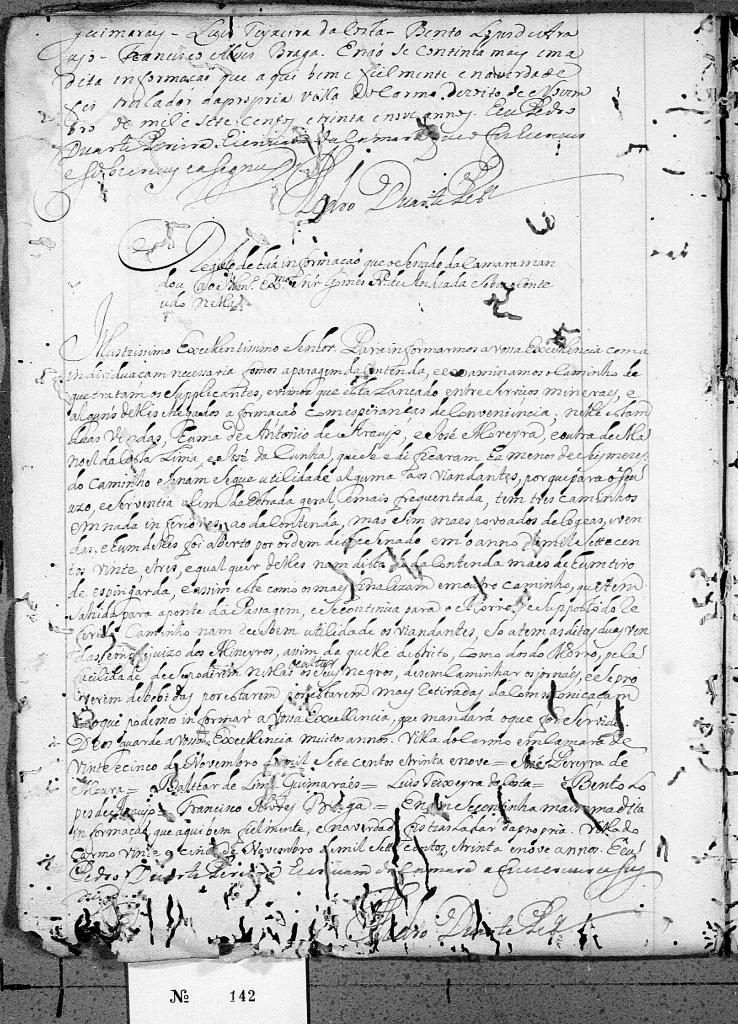 guimarays - Luis Teyxeira da Costa - Bento Lopes de Ara
ujo - Francisco Alves Braga. E não se continha mays em a
dita informação que aqui bem e fielmente e na verdade
fes tresladar da propria Villa do Carmo dezoito de Novem
bro de mil e sete centos e trinta e nove annos. Eu Pedro
Duarte Pereira Escrivam da Camara que o fis escrever
e sobscrevy e asigney
Pedro Duarte Per.ª
Registo de huã informação que o Senado da Camara man
dou ao Gomes Fr. de Andrada sobre o conte
udo nella
Illustrissimo e Excellentissimo Senhor. Para informarmos a Vossa Excellencia com a
individuacam necessaria fomos a paragem da contenda, e examinamos o caminho de
que tratam os Supplicantes, e vimos que está lançado entre serviços mineraes, e
alguns delles chegados a formação com esperanças de conveniencia; nelle estam
duas vendas, huma de Antonio de Araujo, e José Moreyra, e outra de Ma
noel da Costa Lima, e José da Cunha, que se edificaram há menos de seis mezes
do caminho e nam segue utilidade alguma aos viandantes, porque para o seu
uzo, e serventia alem da estrada geral, e mais frequentada, tem tres caminhos
em nada inferiores ao da contenda, mas sim maes povoados de logeas, e ven
das, e hum delles foi aberto por ordem deste Senado em o anno de mil e sette cen
tos vinte e tres, e qual quer delles nam dista do da contenda maes de hum tiro
de espingarda, e assim este como os mays finalizam em outro caminho, que tem
sahida para a ponte da Passagem, e se continua para o Morro, e supposto do re
ferido Caminho nam recebem utilidade os viandantes, só a tem as ditas duas ven
das em prejuizo dos Mineyros, assim da quelle destrito, como dos do Morro, pela
facilidade de se poderem nellas ocultar os seus negros, desemcaminhar os jornaes, e se pro
verem de bebidas por estarem por estarem mays retiradas da communicacam
He o que podemos informar a Vossa Excellencia, que mandará o que for servido
Deos guarde a Vossa Excellencia muitos annos. Villa do Carmo em Camara de
vinte e cinco de Novembro de mil e sette centos e trinta e nove = José Pereyra de
Moura = Balthar de Lima Guimaraes = Luis Teixeyra da Costa = Bento Lo
pes de Araujo = Francisco Alves Braga = E não se continha mais em a dita
informaçam que aqui bem fielmente, e na verdade fis tresladar da propria. Villa do
Carmo vinte e cinco de Novembro de mil e sette centos e trinta e nove annos. E eu
Pedro Duarte Pereira Escrivam da Camara a fis escrever e sobs
Pedro Duarte Per.ª
Nº 142